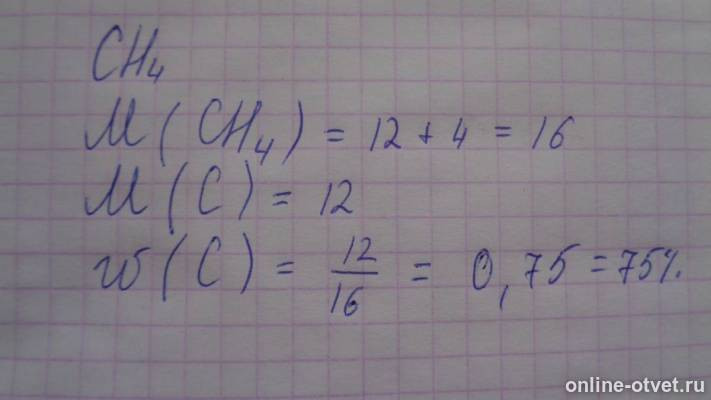 CH₄
M(CH₄) = 12 + 4 = 16
M(C) = 12
w(C) = 12/16 = 0,75 = 75%.
online-otvet.ru